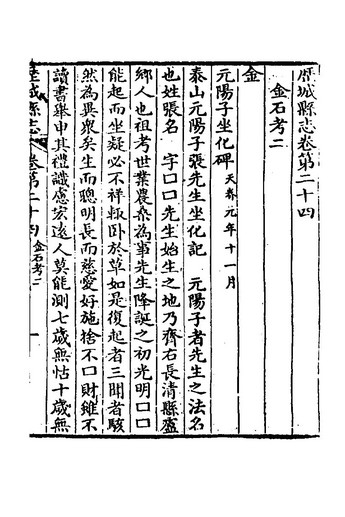 歷城縣志卷第二十四
金石考二
金
元陽子坐化碑 天眷元年十一月
泰山元陽子張先生坐化記 元陽子者先生之法名
也姓張名 字口口先生始生之地乃齊右長清縣盧
鄉人也祖考世業農桑為事先生降誕之初光明口口
能起而坐疑必不祥輒卧於草如是復起者三聞者駭
然為異衆矣生而聰明長而慈愛好施捨不口財雖不
讀書舉申其禮識慮宏遠人莫能測七歲無怙十歲無
歷城縣志 卷第二十四 金石考二 一